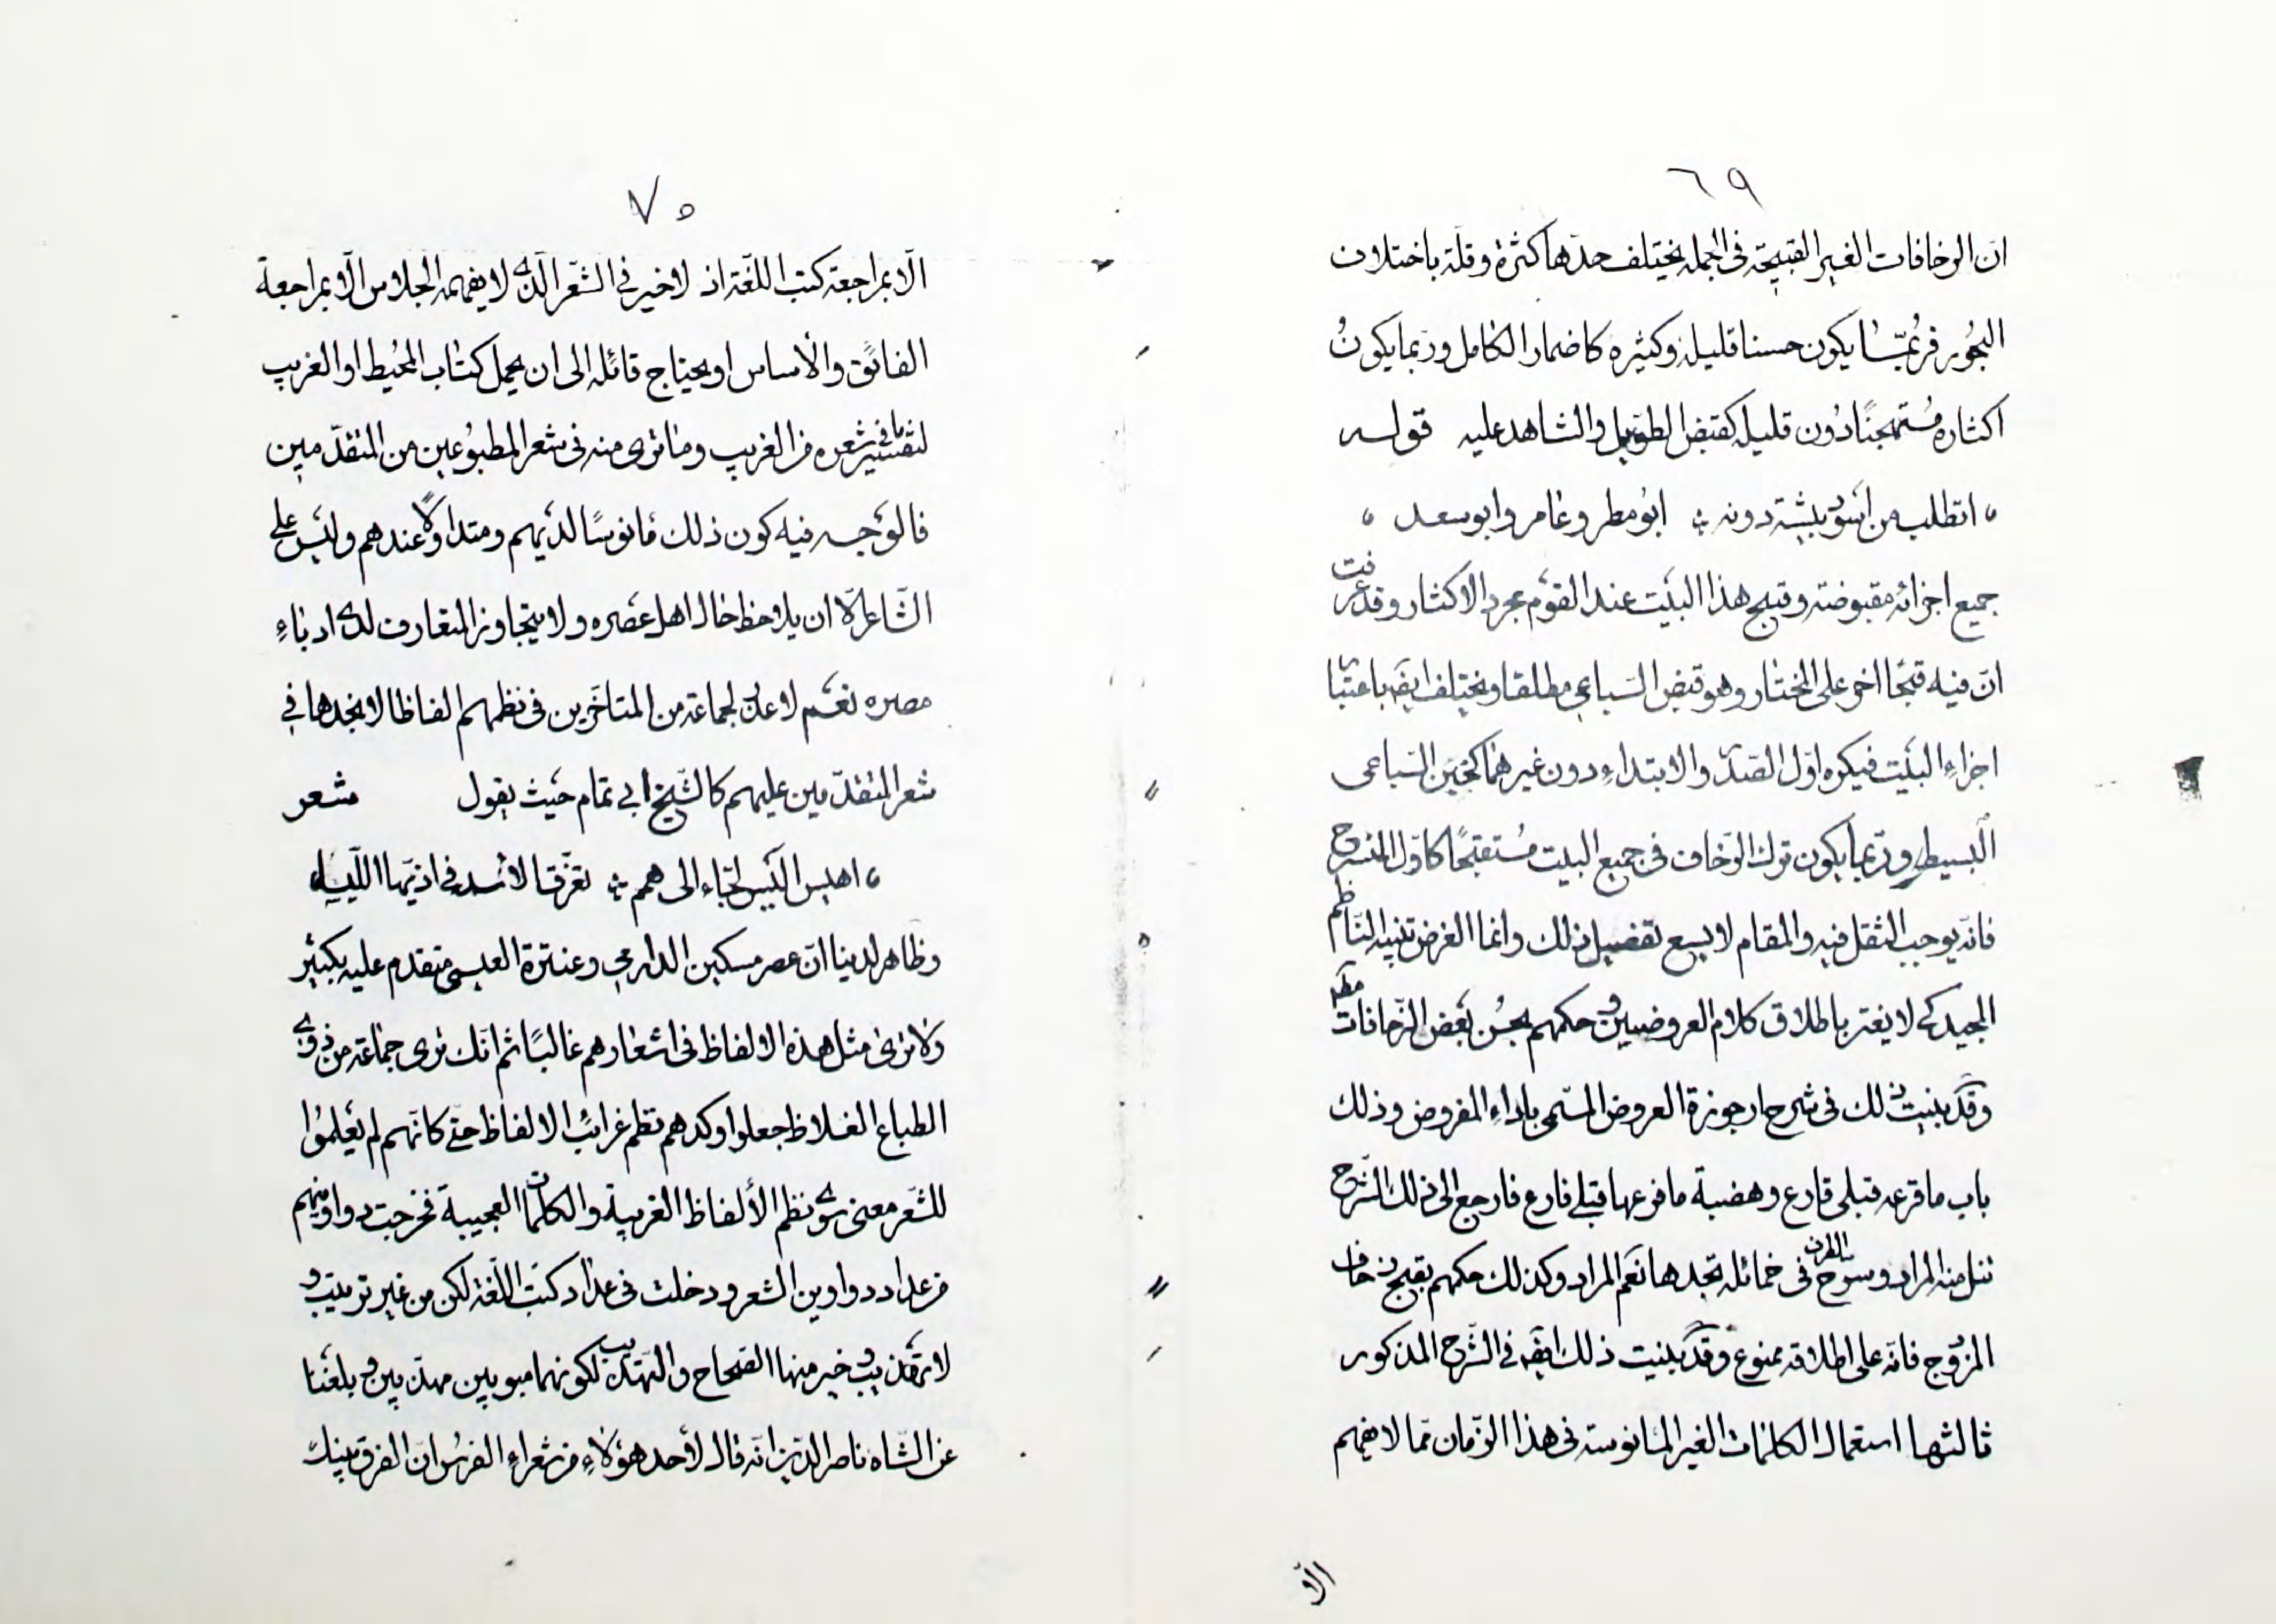 ٦٩
انّ الزحافات الغير القبيحة فى الجملة يختلف حدّها كثرة وقلّة باختلاف
البحُور فرُبّما يكون حسنا قليله وكثيره كاضمار الكامل وربما يكونُ
اكثاره مُستهجنًا دُون قليله كقبض الطوّيل والشاهد عليه قوله
اتطلب من اسود بيشة دونه ابو مطر وعامر وابو سعد
جميع اجزائه مقبوضة وقبح هذا البيَت عند القوَم بمجرد الاكثار وقد عرفت
انّ فيه قبحًا اخر على المختار وهو قبض السّباعى مطلقا ويختلف ايضَه باعتبار
اجزاءِ البيَت فيكره اوّل الصّدر والابتداءِ دون غيرهما كخبن السّباعى
البسيط وربّما يكون ترك الزحاف فى جميع البيت مُستقبحًا كاوّل المنسرح
فانّه يوجب الثقل فيه والمقام لا يسع تفصيل ذلك وانما الغرض تنبيه النّاظم
المجيد كى لا يغتر باطلاق كلام العروضيين وحكمهم بحسُن بعَض الزّحافات مطَه
وقَد بينت ذلك فى شرح ارجوزة العروض المسّمى باداءِ المفروض وذلك
باب ما قرعه قبلى قارع وهضبة ما فرعها قبلى فارع فارجع الى ذلك الشّرح
تنل منه المراد وسرّح الطرف فى خمائله تجدها نعَم المراد وكذلك حكمهم بقبح زحاف
المزوج فانّه على اطلاقه ممنوع وقَد بينت ذلك ايضَه فى الشّرح المذكور
ثالثها استعمال الكلمات الغير المانوسة فى هذا الزّمان ممّا لا يفهم
الّا
٧٠
الّا بمراجعة كتب اللّغة اذ لا خير فى الشّعر الّذى لا يفهمه الجلاس الّا بمراجعة
الفائق والأساس او يحتاج قائله الى ان يحمل كتاب المحُيط او الغريب
لتفسير ما فى شعره من الغريب وما ترى منه فى شعر المطبوُعين من المتقدّمين
فالوَجه فيه كون ذلك مانوسًا لديَهم ومتداولًا عندهم وليَس على
الشّاعر الّا ان يلاحظ حال اهل عصَره ولا يتجاوز المتعارف لدى ادباءِ
مصره نعَم لا عدل لجماعة من المتاخّرين فى نظمهم الفاظا لا نجدها فى
شعر المتقدّمين عليهم كالشّيخ ابى تمام حيَث يقول شعر
اهيس اليَس لجّاء الى همم تغرّق الأسد فى اذيّها الليسا
وظاهر لدينا انّ عصر مسكين الدارمى وعنترة العبسى متقدم عليه بكثير
ولا ترى مثل هذه الالفاظ فى اشعارهم غالبًا ثم انّك ترى جماعة من ذوى
الطباع الغلاظ جعلوا وكدهم نظم غرائب الالفاظ حتّى كانّهم لم يعَلموُا
للشّعر معنى سوى نظم الألفاظ الغريبة والكلمات العجيبة فخرجت دواوينهم
من عداد دواوين الشعر ودخلت فى عداد كتب اللّغة لكن من غير ترتيب و
لا تهَذيب وخير منها الصّحاح والتهّذيب لكونهما مبوبين مهذّبين وبلغَنا
عن الشّاه ناصر الدّين انّه قال لأحد هؤلاءِ من شعراءِ الفرسُ انّ الفرق بينك